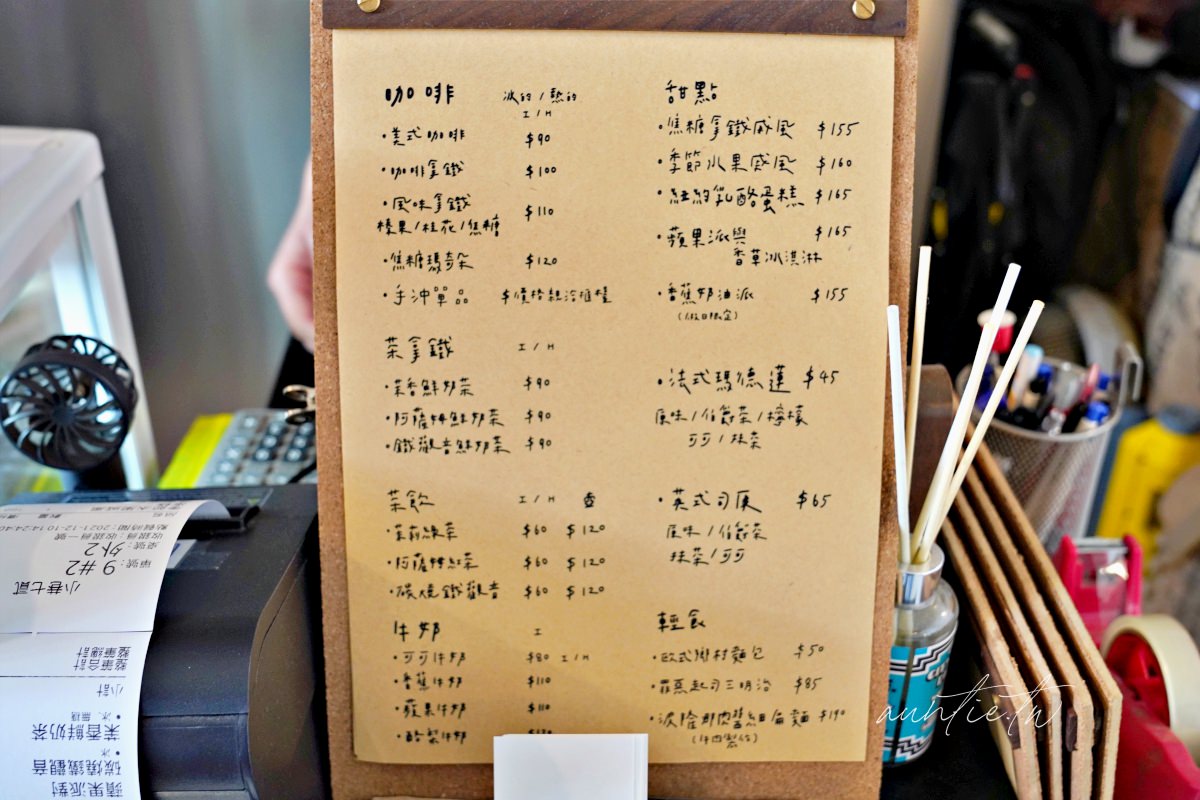 咖啡 冰的/熱的
I/H
·美式咖啡 $90
·咖啡拿鐵 $100
·風味拿鐵 $110
榛果/桂花/焦糖
·焦糖瑪奇朵 $120
·手沖單品
茶拿鐵 I/H
·茉香鮮奶茶 $90
·阿薩姆鮮奶茶 $90
·鐵觀音鮮奶茶 $90
茶飲 I/H 壺
·茉莉綠茶 $60 $120
·阿薩姆紅茶 $60 $120
·碳燒鐵觀音 $60 $120
牛奶 I
·可可牛奶 $80 I/H
·香蕉牛奶 $110
·蘋果牛奶 $110
·酪梨牛奶
甜點
·焦糖拿鐵戚風 $155
·季節水果戚風 $160
·紐約乳酪蛋糕 $165
·蘋果派與 $165
香草冰淇淋
·香蕉奶油派 $155
(假日限定)
·法式瑪德蓮 $45
原味/伯爵茶/檸檬
可可/抹茶
·英式司康 $65
原味/伯爵茶
抹茶/可可
輕食
·歐式鄉村麵包 $50
·羅勒起司三明治 $85
·波隆那肉醬細扁麵 $190
小巷七貳
單號:9#2
桌號:外2
收銀員:收銀員一號
點餐時間:2021-12-10 14:24:40
整單總計
整單合計
小計
·冰.無糖
茉香鮮奶茶
·冰
碳燒鐵觀音
蘋果派對
auntie.tw